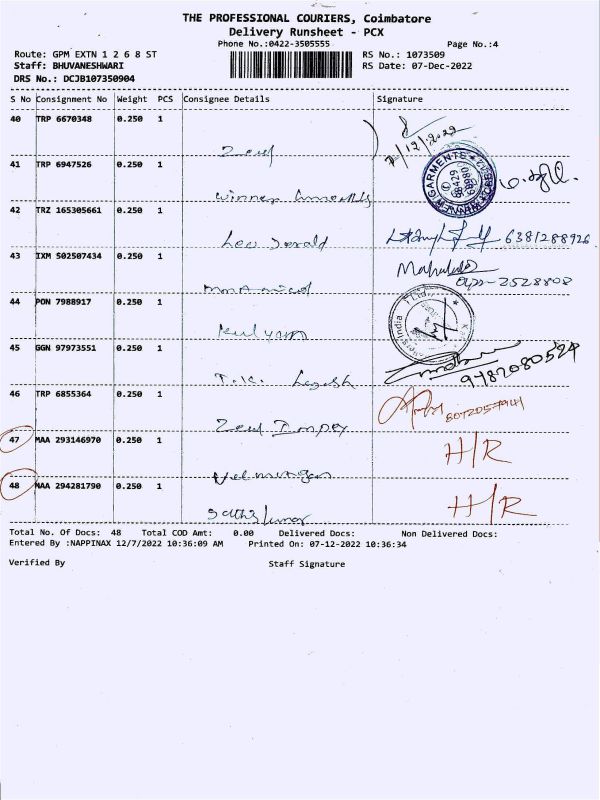 THE PROFESSIONAL COURIERS, Coimbatore
Delivery Runsheet - PCX
Phone No.:0422-3505555
Page No.:4
Route: GPM EXTN 1 2 6 8 ST
RS No.: 1073509
Staff: BHUVANESHWARI
RS Date: 07-Dec-2022
DRS No.: DCJB107350904
S No Consignment No Weight PCS Consignee Details Signature
40 TRP 6670348 0.250 1
7/12/2022
41 TRP 6947526 0.250 1
GARMENTS
winner
42 TRZ 165305661 0.250 1
Leo Jerald 6381288926
43 IXM 502507434 0.250 1
2528808
44 PON 7988917 0.250 1
India
45 GGN 97973551 0.250 1
T.K. 9482080529
46 TRP 6855364 0.250 1
Zeul Impex
47 MAA 293146970 0.250 1
H/R
Velmurugan
48 MAA 294281790 0.250 1
H/R
Sathskumar
Total No. Of Docs: 48 Total COD Amt: 0.00 Delivered Docs: Non Delivered Docs:
Entered By :NAPPINAX 12/7/2022 10:36:09 AM Printed On: 07-12-2022 10:36:34
Verified By Staff Signature